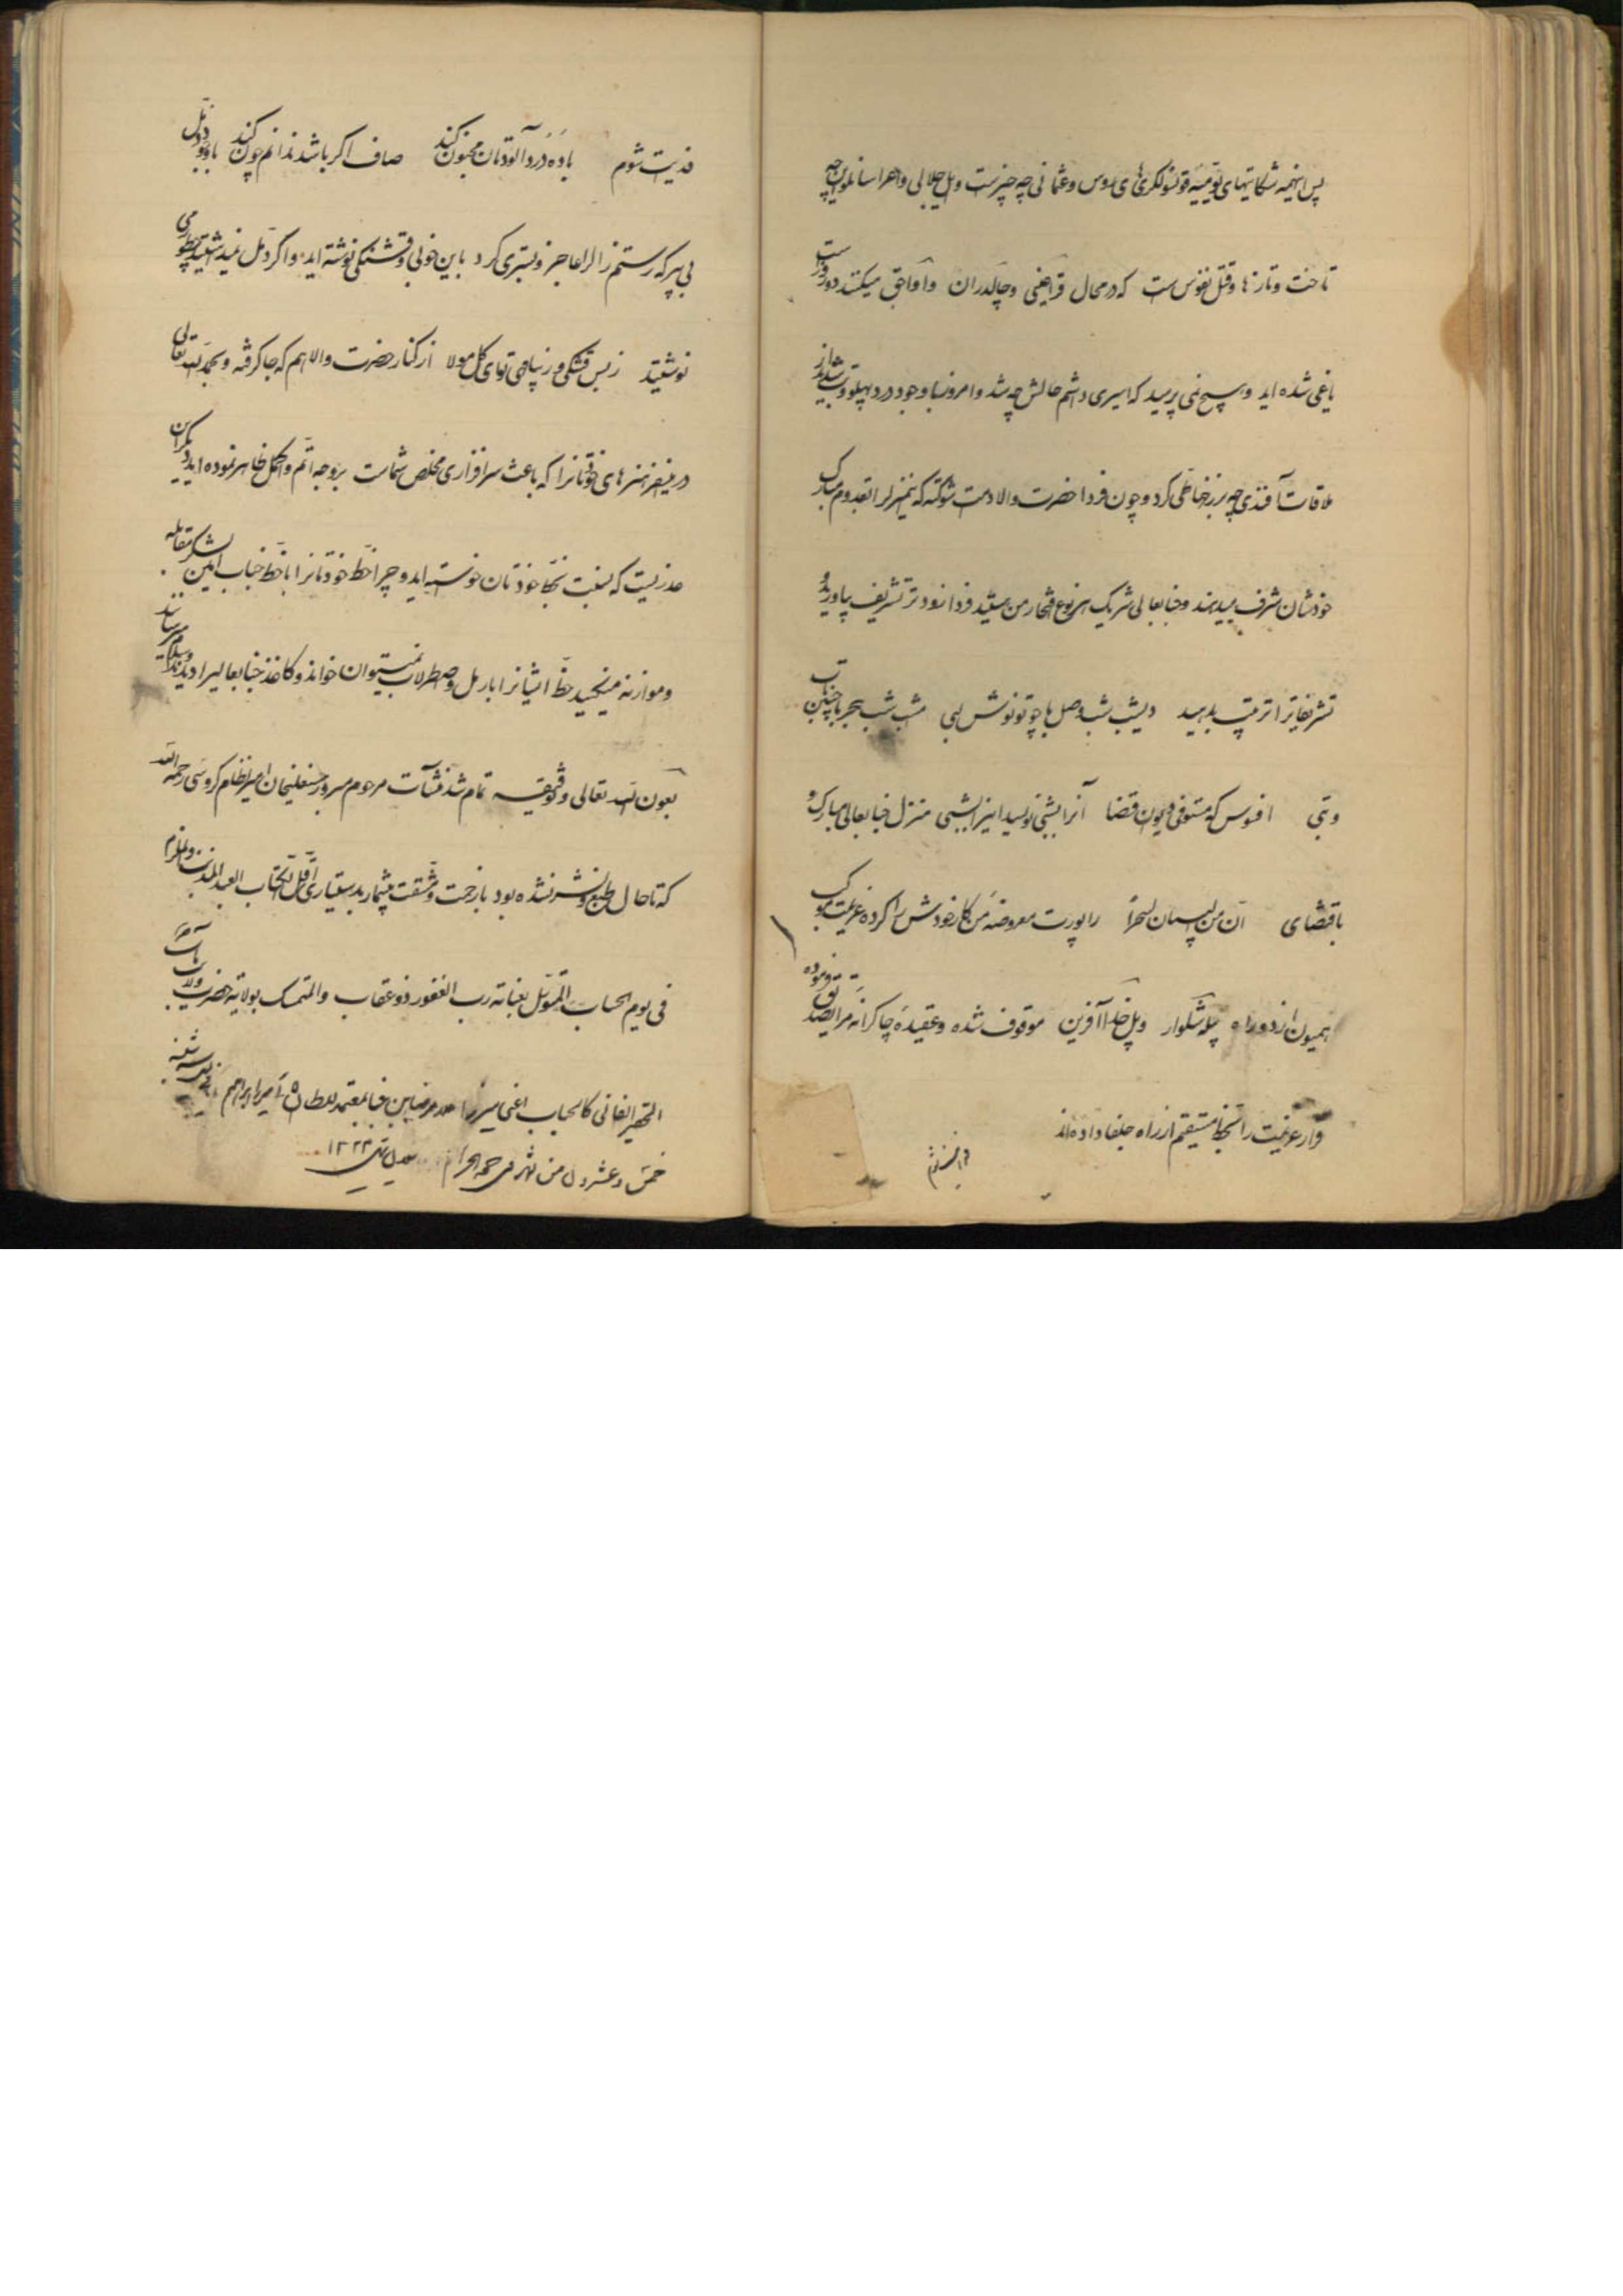 پس اینهمه شکایتهای یومیه قونسولگریهای روس و عثمانی چه چیز است و ایل جلالی و اهراسانلو این چه
تاخت و تازها و قتل نفوس است که در محال قراعینی و چالدران و آواجق میکنند دو روز است
یاغی شده اید و هیچ نمی پرسید که اسیری داشتم حالش چه شد و امروز با وجود درد پهلو و تب
ملاقات آفندی چه برزخها طی کرد و چون فردا حضرت والا دامت شوکته که منزل را بقدوم مبارک
خودشان شرف میدهند و جنابعالی شریک هر نوع افتخار من هستید فردا زودتر تشریف بیاورید و
تشریفاترا ترتیب بدهید دیشب شب وصل با چو تو نوش لبی امشب شب هجر با چنین تاب
و تبی افسوس که مستوفی دیوان قضا آنرا بشبی نویسد اینرا بشبی منزل جنابعالی مبارک و
باقتضای ان من البیان لسحرا راپورت معروضه من کار خودش را کرده عزیمت موکب
همیون از دو راه پله شکوار و پل خدا آفرین موقوف شده و عقیده چاکرانه مرا تصدیق فرموده
قرار عزیمت را بخط مستقیم از راه جلفا داده اند
فدایت شوم باده دردآلودتان مجنون کند صاف اگر باشد ندانم چون کند با وجود دمل
بی پیر که رستم زال را عاجز و بستری کرد باین خوبی و قشنگی نوشته اید و اگر دمل نمیداشتید چطور می
نوشتید ز بس قشنگی و زیبایی توای گل مولا از کنار حضرت والا هم که جا گرفته و بحمد الله تعالی
درینفر هنرهای خودتانرا که باعث سرافرازی مخلص شماست بر وجه اتم و اکمل ظاهر نموده اید دیگر این
عذریست که بنسبت خط خودتان خواسته اید و چرا خط خودتانرا با خط جناب امین لشکر مقابله
و موازنه میکنید خط ایشانرا با رمل و اصطرلاب نمیتوان خواند و کاغذ جنابعالیرا
بعون الله تعالی و توفیقه تمام شد منشآت مرحوم مبرور حسنعلیخان امیر نظام گروسی رحمه الله
که تا حال طبع و نشر نشده بود با زحمت و مشقت بیشمار بدستیاری اقل الکتاب العبد المذنب
فی یوم الحساب المتوسل بعنایة رب الغفور ذو عقاب والمتمسک بولایة حضرت ولایت مآب
الحقیر الفانی کالحباب اعنی میرزا ابن معتمد السلطان میرزا ابراهیم
خمس و عشرون من شهر